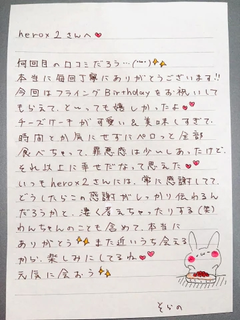 herox2さんへ♥
何回目の口コミだろう…(''''')✨
本当に毎回丁寧にありがとうございます!!
今回はフライングBirthdayをお祝いして
もらえて、と〜っても嬉しかったよ♥
チーズケーキが可愛い&美味しすぎて、
時間とか気にせずにペロっと全部
食べちゃって、罪悪感は少〜しあったけど、
それ以上に幸せだなって思えた♥♥
いつもherox2さんには、常に感謝してて、
どうしたらこの感謝がしっかり伝わるん
だろうかと、凄く考えちゃったりする(笑)
わんちゃんのことも含めて、本当に
ありがとう✨また近いうち会える
から、楽しみにしてるね♥♥
元気に会おう✨
そらの